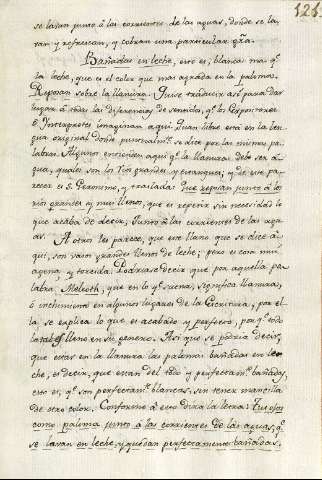 121.
se lavan junto á las corrientes de las aguas, donde se la-
van y refrescan, y cobran una particular gra.
Bañadas en leche, esto es, blancas mas q.
la leche, que es el color que mas agrada en la paloma.
Reposan sobre la llanura. Quise traducir asi para dar
lugar á todas las diferencias de sentidos, q. los Expositores
é Interpretes imaginan aqui. Quan libre está en la len-
gua original donde puntualm.te se dice por las mismas pa-
labras. Algunos entienden aqui q. la llanura debe ser a-
gua, quales son los rios grandes y estanques; y de este pa-
recer es S. Geronimo, y traslada: que reposan junto á los
rios grandes y muy llenos, que es repetir sin necesidad lo
que acaba de decir, junto á las corrientes de las agu-
as. A otros les parece, que este lleno que se dice a-
qui, son vasos grandes llenos de leche; pero es cosa muy
agena y torcida. Podráse decir que por aquella pa-
labra Meleoth, que en lo q. suena, significa llanura,
ó enchimiento en algunos lugares de la Escritura, por el-
la se explica lo que es acabado y perfecto, por q. todo
lo tal es lleno en su genero. Asi que se podria decir,
que estar en la llanura las palomas bañadas en le-
che, es decir, que estan del todo y perfectam.te bañadas,
esto es, q. son perfectam.te blancas, sin tener mancilla
de otro color. Conforme á esto dirá la letra: Tus ojos
como paloma junto á las corrientes de las aguas, q.
se lavan en leche, y quedan perfectamente bañadas.